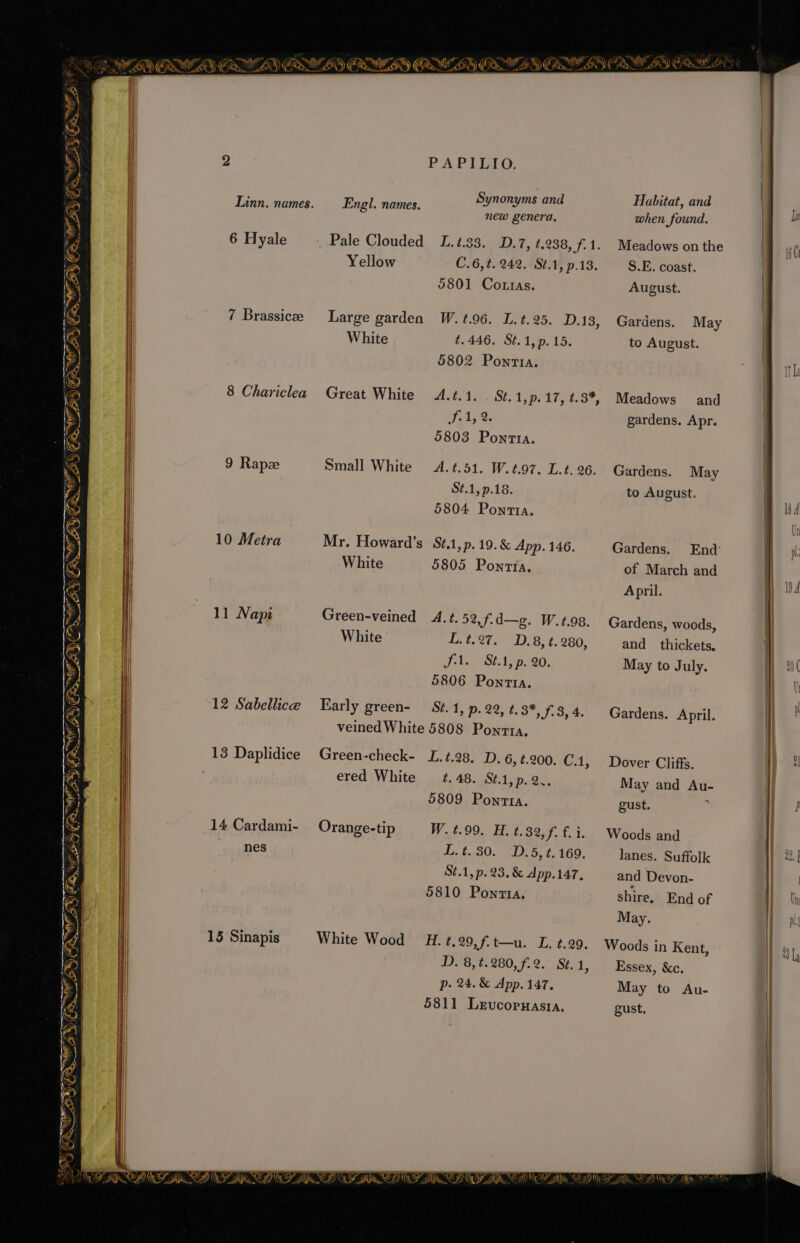 2 PAPILIO.
Linn. names. Engl. names. Synonyms and new genera. Habitat, and when found.
6 Hyale Pale Clouded L.t.33. D.7, t.238, f.1. Meadows on the
Yellow C.6, t. 242. St.1, p.13. S.E. coast.
5801 COLIAS. August.
7 Brassicæ Large garden W. t.96. L. t. 25. D.13, Gardens. May
White t. 446. St. 1, p. 15. to August.
5802 PONTIA.
8 Chariclea Great White A.t.1. St. 1, p. 17, t.3*, Meadows and
f.1, 2. gardens. Apr.
5803 PONTIA.
9 Rapæ Small White A. t.51. W. t.97. L. t. 26. Gardens. May
St.1, p.18. to August.
5804 PONTIA.
10 Metra Mr. Howard's St.1, p. 19. & App. 146. Gardens. End
White 5805 PONTIA. of March and
April.
11 Napi Green-veined A. t. 52, f. d—g. W. t.98. Gardens, woods,
White L. t. 27. D. 8, t. 280, and thickets.
f.1. St.1, p. 20. May to July.
5806 PONTIA.
12 Sabellicæ Early green- St. 1, p. 22, t. 3*, f. 3, 4. Gardens. April.
veined White 5808 PONTIA.
13 Daplidice Green-check- L. t.28. D. 6, t.200. C.1, Dover Cliffs.
ered White t. 48. St.1, p. 2.. May and Au-
5809 PONTIA. gust.
14 Cardami- Orange-tip W. t.99. H. t.32, f. f. i. Woods and
nes L. t. 30. D. 5, t. 169. lanes. Suffolk
St.1, p. 23. & App.147. and Devon-
5810 PONTIA. shire. End of
May.
15 Sinapis White Wood H. t.29, f. t—u. L. t.29. Woods in Kent,
D. 8, t. 280, f. 2. St. 1, Essex, &c.
p. 24. & App. 147. May to Au-
5811 LEUCOPHASIA. gust.